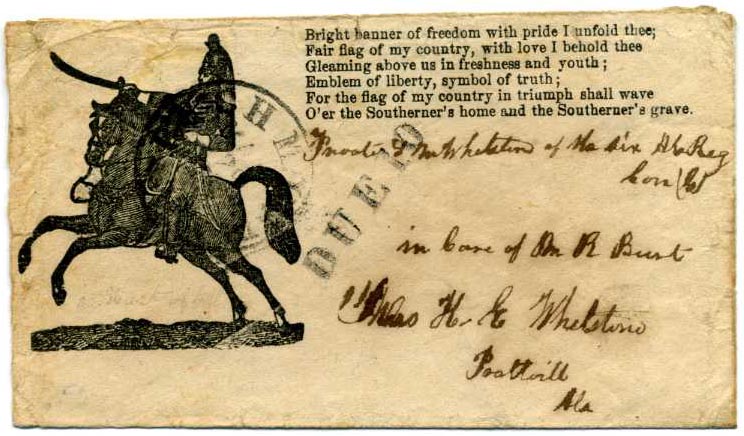 Bright banner of freedom with pride I unfold thee;
Fair flag of my country, with love I behold thee
Gleaming above us in freshness and youth;
Emblem of liberty, symbol of truth;
For the flag of my country in triumph shall wave
O'er the Southerner's home and the Southerner's grave.
Whelston of the six Ala Reg
HM
DUE 10
in Care of Dr R Burt
Mrs H E Whelstone
Prattvill
Ala